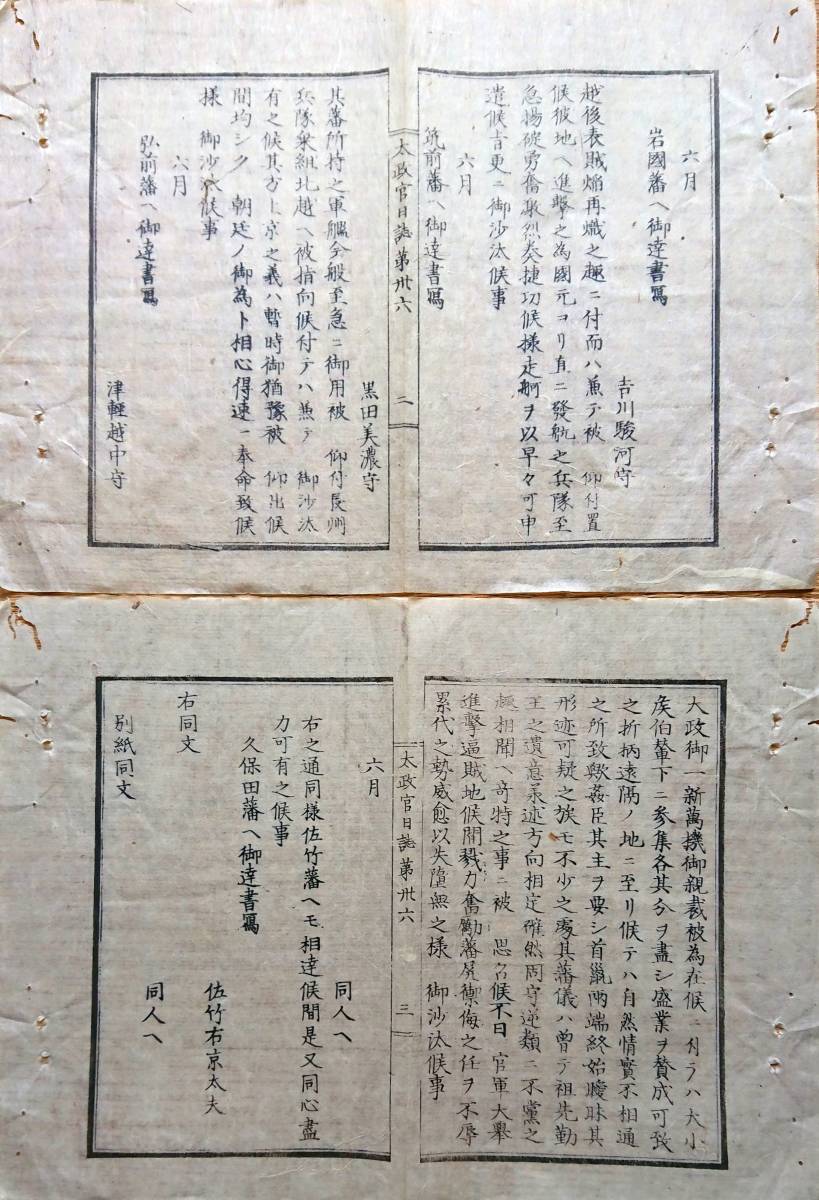 六月
岩國藩ヘ御達書寫
吉川駿河守
越後表賊焔再熾之趣ニ付而ハ兼テ被　仰付置
候彼地ヘ進擊之為國元ヨリ直ニ發航之兵隊至
急揚碇勇奮激烈奏捷功候様走舸ヲ以早々可申
遣候旨更ニ御沙汰候事
六月
筑前藩ヘ御達書寫
太政官日誌第卅六
二
黒田美濃守
其藩所持之軍艦今般至急ニ御用被　仰付長州
兵隊乗組北越ヘ被指向候付テハ兼テ　御沙汰
有之候其方上京之義ハ暫時御猶豫被　仰出候
間均シク　朝廷ノ御為ト相心得速ニ奉命致候
様　御沙汰候事
六月
弘前藩ヘ御達書寫
津輕越中守
大政御一新萬機御親裁被為在候ニ付テハ大小
侯伯輦下ニ参集各其分ヲ盡シ盛業ヲ賛成可致
之折柄遠隔ノ地ニ至リ候テハ自然情實不相通
之所致歟姦臣其主ヲ要シ首鼠両端終始曖昧其
形迹可疑之族モ不少之處其藩儀ハ曽テ祖先勤
王之遺意承迹方向相定確然固守逆類ニ不黨之
趣相聞ヘ奇特之事ニ被　思召候不日　官軍大擧
進擊逼賊地候間戮力奮勵藩屏禦侮之任ヲ不辱
累代之勢威愈以失墮無之様　御沙汰候事
太政官日誌第卅六
三
六月
同人ヘ
右之通同様佐竹藩ヘモ相達候間是又同心盡
力可有之候事
久保田藩ヘ御達書寫
佐竹右京太夫
右同文
同人ヘ
別紙同文